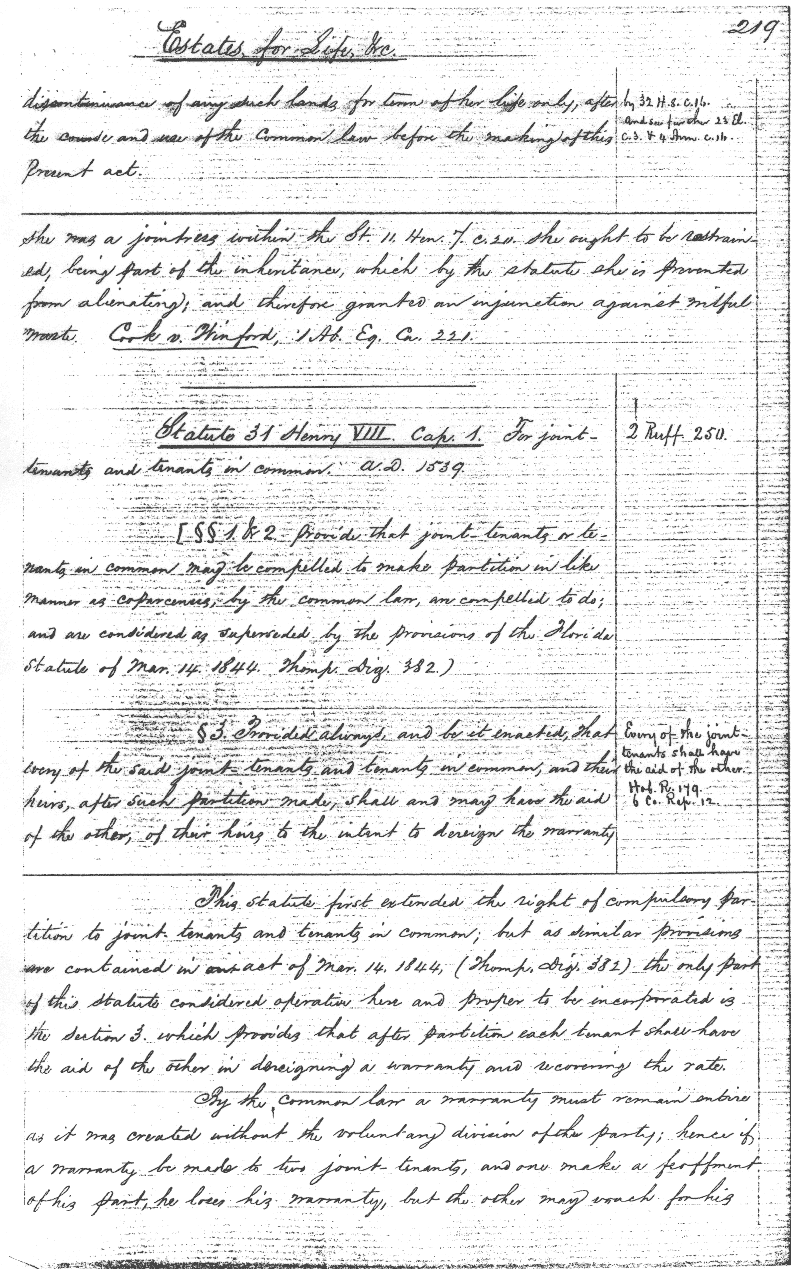 219
Estates, for Life, &c.
discontinuance of any such lands for term of her life only, after
the course and use of the Common law before the making of this
Present act.
by 32 H. 8. c. 16.
and see further 23 El.
c. 3. & 4 Ann. c. 16.
she was a jointress within the St. 11. Hen. 7. c. 20. she ought to be restrain-
ed, being part of the inheritance, which by the statute she is prevented
from alienating; and therefore granted an injunction against wilful
waste. Cook v. Winford, 1 Ab. Eq. Ca. 221.
Statute 31 Henry VIII. Cap. 1. For joint-
tenants and tenants in common. A.D. 1539.
2 Ruff. 250.
[§§ 1. & 2. Provide that joint-tenants or te-
nants in common may be compelled to make partition in like
manner as coparceners, by the common law, are compelled to do;
and are considered as superseded by the provisions of the Florida
Statute of Mar. 14. 1844. Thomp. Dig. 382.)
§ 3. Provided always, and be it enacted, That
every of the said joint-tenants and tenants in common, and their
heirs, after such partition made, shall and may have the aid
of the other, of their heirs to the intent to dereign the warranty
Every of the joint-
tenants shall have
the aid of the other.
Hob. R. 179.
6 Co. Rep. 12.
This statute first extended the right of compulsory par-
tition to joint-tenants and tenants in common; but as similar provisions
are contained in our act of Mar. 14. 1844, (Thomp. Dig. 382) the only part
of this statute considered operative here and proper to be incorporated is
the section 3. which provides that after partition each tenant shall have
the aid of the other in dereigning a warranty and recovering the rate.
By the common law a warranty must remain entire
as it was created without the voluntary division of the party; hence if
a warranty be made to two joint-tenants, and one make a feoffment
of his part, he loses his warranty, but the other may vouch for his